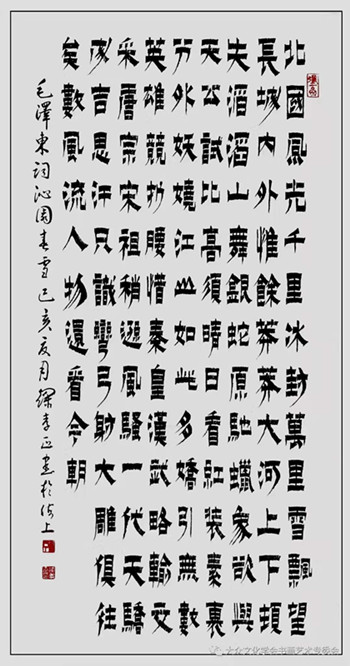 北國風光千里冰封萬里雪飄望
長城内外惟餘莽莽大河上下頓
失滔滔山舞銀蛇原馳蠟象欲與
天公試比高須晴日看紅裝素裹
分外妖嬈江山如此多嬌引無數
英雄競折腰惜秦皇漢武略輸文
采唐宗宋祖稍遜風騷一代天驕
成吉思汗只識彎弓射大雕俱往
矣數風流人物還看今朝
毛澤東詞沁園春雪己亥夏月書於海上